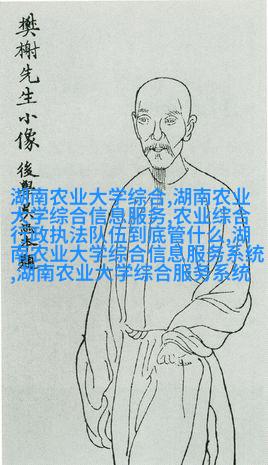 樊榭先生小像
後學
湖南农业大学综合,湖南农业
大学综合信息服务,农业综合
行政执法队伍到底管什么,湖
南农业大学综合信息服务系统
,湖南农业大学综合服务系统